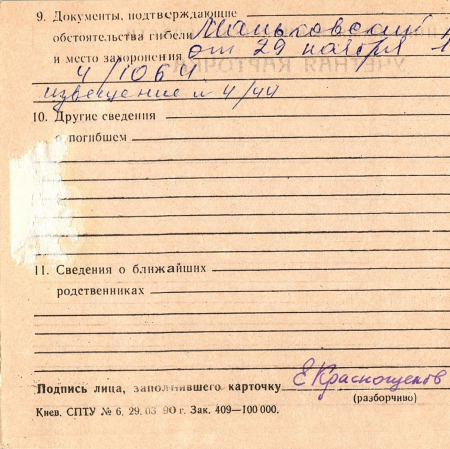 9. Документы, подтверждающие
обстоятельства гибели Маньковский
и место захоронения от 29 ноября 1
4/1064
извещение № 4/44
10. Другие сведения
о погибшем
11. Сведения о ближайших
родственниках
Подпись лица, заполнившего карточку Е Краснощеков
(разборчиво)
Киев. СПТУ № 6, 29. 03 90 г. Зак. 409—100 000.